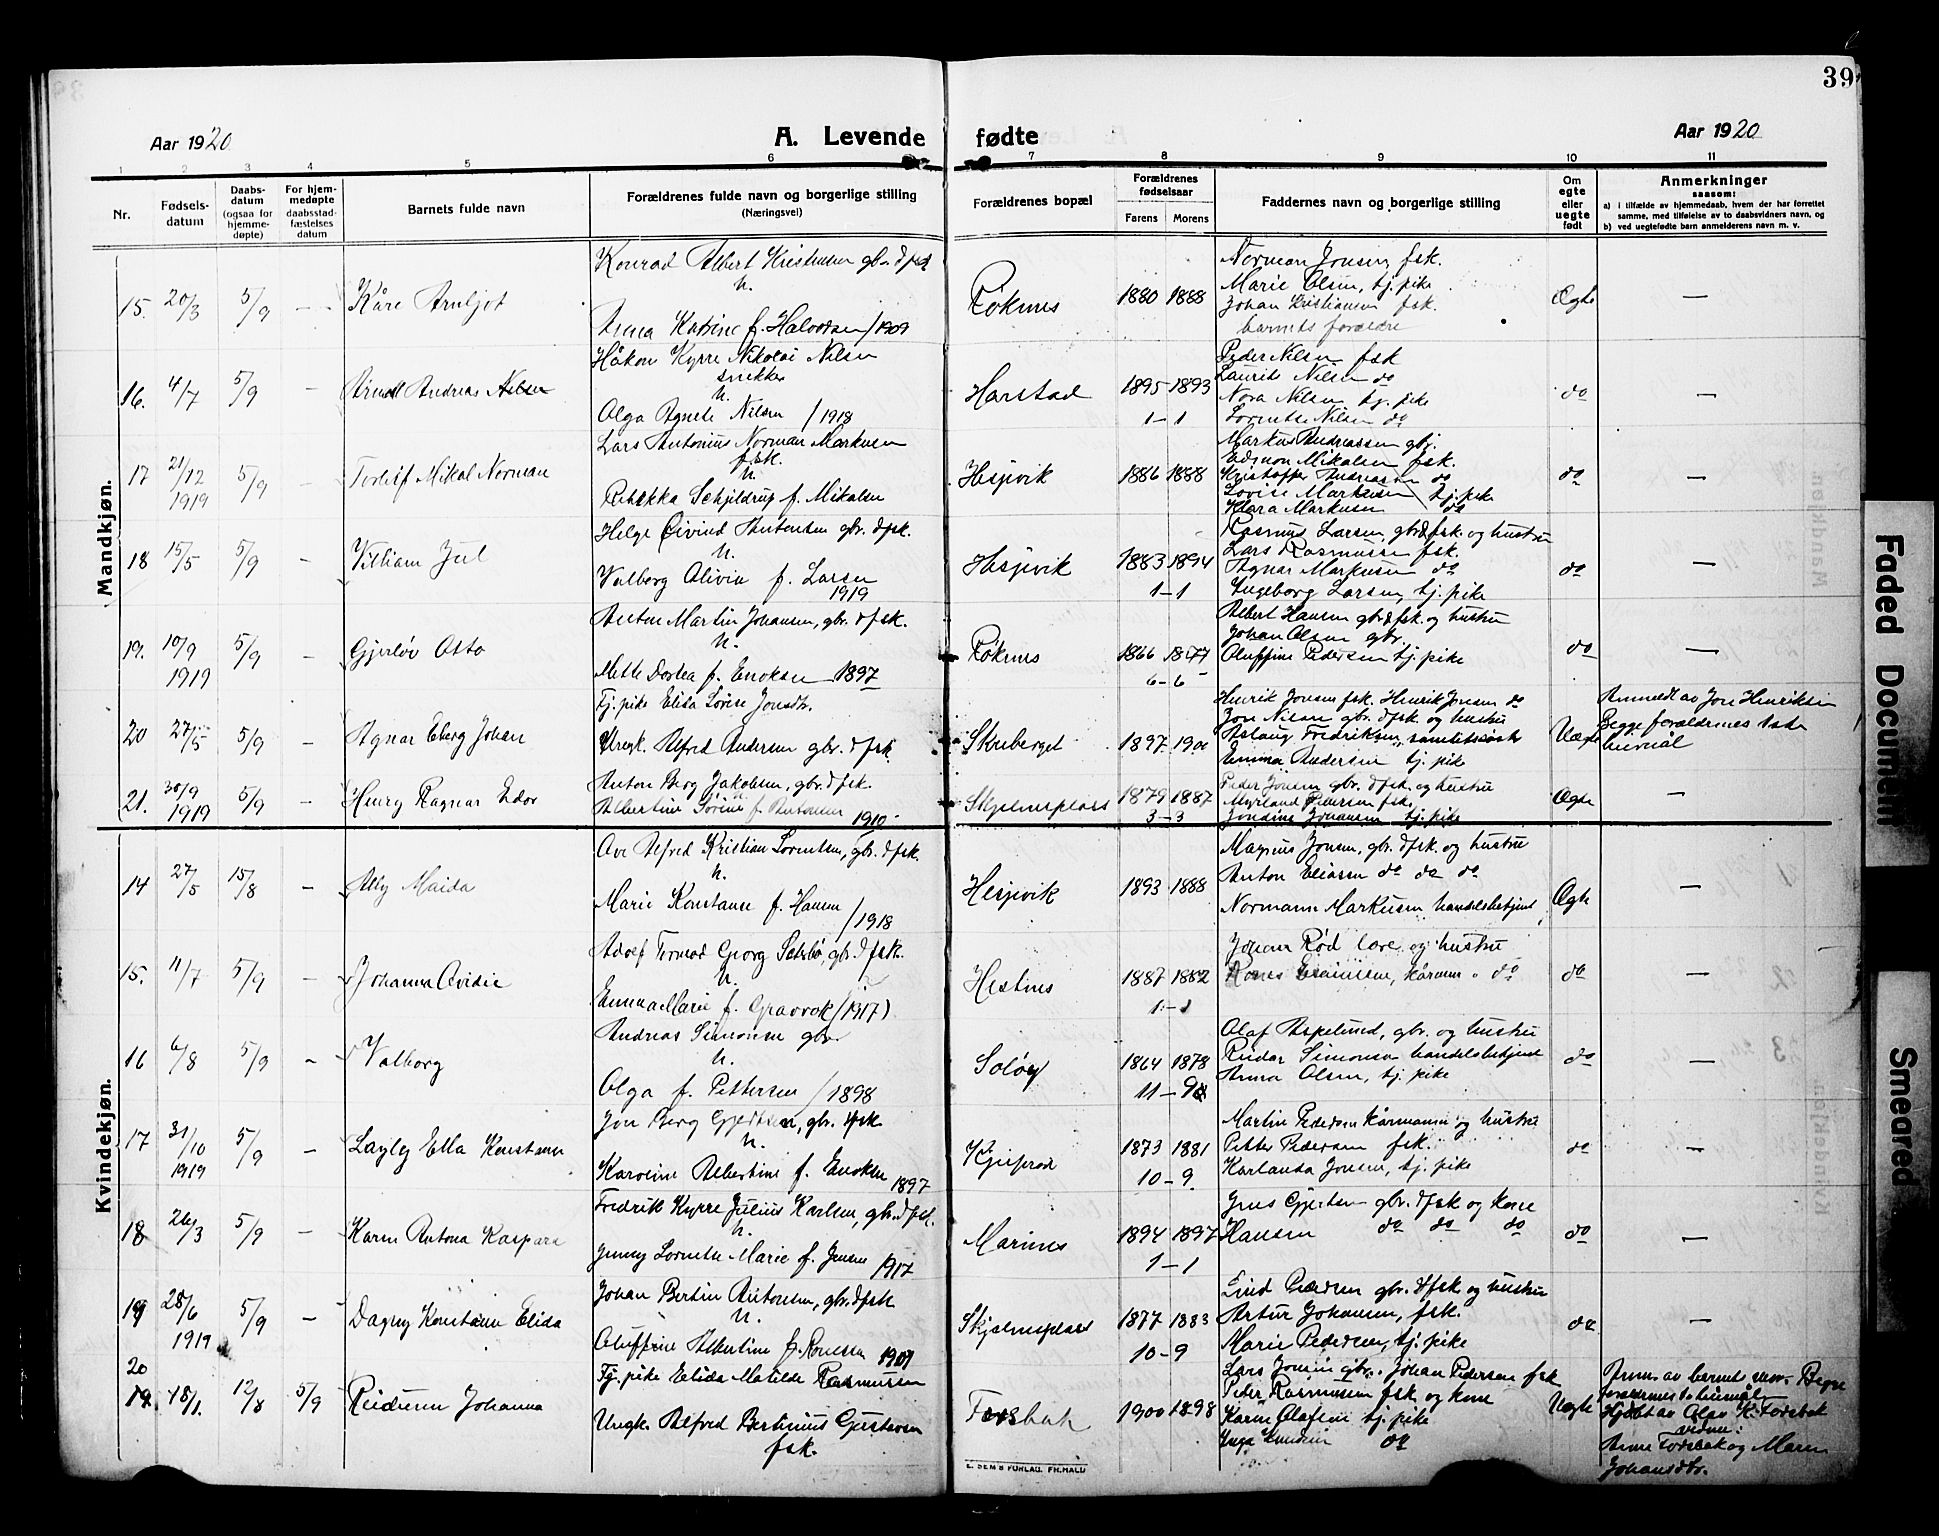 39
Aar 1920
A. Levende fødte
Aar 1920
1 2 3 4 5 6 7 8 9 10 11
Nr.
Fødsels-
datum
Daabs-
datum
(ogsaa for
hjemme-
døpte)
For hjem-
medøpte
daabsstad-
fæstelses
datum
Barnets fulde navn
Forældrenes fulde navn og borgerlige stilling
(Næringsvei)
Forældrenes bopæl
Forældrenes
fødselsaar
Farens Morens
Faddernes navn og borgerlige stilling
Om
egte
eller
uegte
født
Anmerkninger
saasom:
a) i tilfælde av hjemmedaab, hvem der har forrettet
samme, med tilføielse av to daabsvidners navn, og
b) ved uegtefødte barn anmelderens navn m. v.
Mandkjøn.
15. 20/3 5/9 — Kåre Arnljot
Konrad Albert Kristiansen gbr. & fsk
h.
Anna Katrine f. Halvorsen / 1909
Røknes 1880 1888
Norman Jonsen, fsk.
Marie Olsen, tj. pike
Johan Kristiansen fsk.
barnets forældre
Ægte —
16. 4/7 5/9 — Arnold Andreas Nilsen
Håkon Kyrre Nikolai Nilsen
snekker
h.
Olga Agnete Nilsen / 1918
Harstad 1895 1893
1–1
Peder Nilsen fsk
Laurits Nilsen do
Nora Nilsen tj. pike
Lornetse Nilsen do
do —
17 21/12 1919 5/9 — Torleif Mikal Norman
Lars Antonius Norman Markusen
fsk.
h.
Rebekka Schjeldrup f. Mikalsen
Hesjevik 1886 1888
Markus Andreassen gbr.
Edmon Mikalsen fsk.
Kristoffer Andreassen do
Lovise Markusen tj. pike
Klara Markusen do
do —
18 15/5 5/9 — William Jul
Helge Eivind Antonsen gbr. & fsk.
h.
Valborg Olivia f. Larsen
1919
Hesjevik 1883 1894
1–1
Rasmus Larsen, gbr & fsk. og hustru
Lars Rasmussen fsk.
Agnar Markusen do
Ingeborg Larsen, tj. pike
do —
19. 10/9 1919 5/9 — Gjerløv Otto
Anton Martin Johansen, gbr. & fsk.
h.
Mette Dortea f. Enoksen 1897
Røknes 1866 1877
6–6
Albert Hansen gbr & fsk. og hustru
Johan Olsen gbr.
Oluffine Pedersen tj. pike
do —
20 27/5 5/9 — Agnar Eberg Johan
Tj. pike Elisa Lovise Jonsdtr.
Ungk. Alfred Andersen gbr. & fsk.
Skreberget 1897 1900
Henrik Jonsen fsk. Henrik Jonsen do
Jon Nilsen gbr. & fsk. og hustru
Aslaug Fredriksen
Emma Andersen tj. pike
Uægte
Anmeldt av Jon Henriksen
Begge forældrenes 1ste
leiermål
21. 30/9 1919 5/9 — Henry Ragnar Edor
Anton Berg Jakobsen, gbr. & fsk.
Albertine Sørine f. Antonsen 1910
Skjelnesplass 1879 1887
3–3
Peder Jonsen gbr. & fsk. og hustru
Myrland Pedersen fsk.
Jondine Johansen tj. pike
Ægte —
Kvindekjøn.
14 27/5 15/8 — Ally Maida
Ove Alfred Kristian Lorentsen, gbr. & fsk.
h.
Marie Konstanse f. Hansen / 1918
Hesjevik 1893 1888
Magnus Jonsen, gbr. & fsk. og hustru
Anton Eliasen do do do
Normann Markusen handelsbetjent
Ægte —
15. 11/7 5/9 — Johanna Ovidie
Adolf Tormod Georg Sætebø, gbr. & fsk.
h.
Emma Marie f. Graavok (1917)
Hestnes 1887 1882
1–1
Johan Rød lære og hustru
do
do —
16 6/8 5/9 — Valborg
Andreas Simonsen gbr
h.
Olga f. Pettersen / 1898
Soløy 1864 1878
11–9
Olaf Aspelund, gbr. og hustru
Reidar Simonsen handelsbetjent
Anna Olsen, tj. pike
do —
17 31/10 1919 5/9 — Layly Ella Konstanse
Jon Berg Gjertsen, gbr. & fsk.
h.
Karoline Albertine f. Enoksen 1897
1873 1881
10–9
Martin Pedersen kårmann og hustru
Petter Pedersen fsk.
Karlanda Jonsen, tj. pike
do —
18 26/3 5/9 — Karen Antona Kaspara
Fredrik Kyrre Julius Karlsen, gbr. & fsk.
h.
Jenny Lornetse Marie f. Jensen 1917
Marines 1894 1897
1–1
Jens Gjertsen gbr. & fsk og kone
Hansen do do do
do —
19 28/6 1919 5/9 — Dagny Konstanse Elida
Johan Bertin Antonsen, gbr. & fsk
h.
Oluffine Albertine f. Pedersen 1907
Skjelnesplass 1877 1883
10–9
Pedersen gbr. & fsk og hustru
Artur Johansen, fsk.
Marie Pedersen, tj. pike
do —
20
19. 18/1 12/8 5/9 Reidunn Johanna
Tj. pike Elida Matilde Rasmussen
Ungk. Alfred Bertinius Gustavsen
fsk.
Forsbak 1900 1898
Lars Jonsen gbr., Johan Pedersen fsk
Peder Rasmussen fsk og kone
Karen Olafsen tj. pike
Inga Knudsen do
Uægte
Anm. av barnets mor. Begge
forældrenes 1ste leiermål
Hjdøbt av Olav K. Forsbak
vidne:
Anne Forsbak og Maren
Johansdtr.
E. SEM'S FORLAG, FR.HALD
Faded Document
Smeared